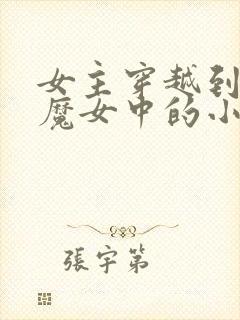 女主穿越到
魔女中的小
張宇第